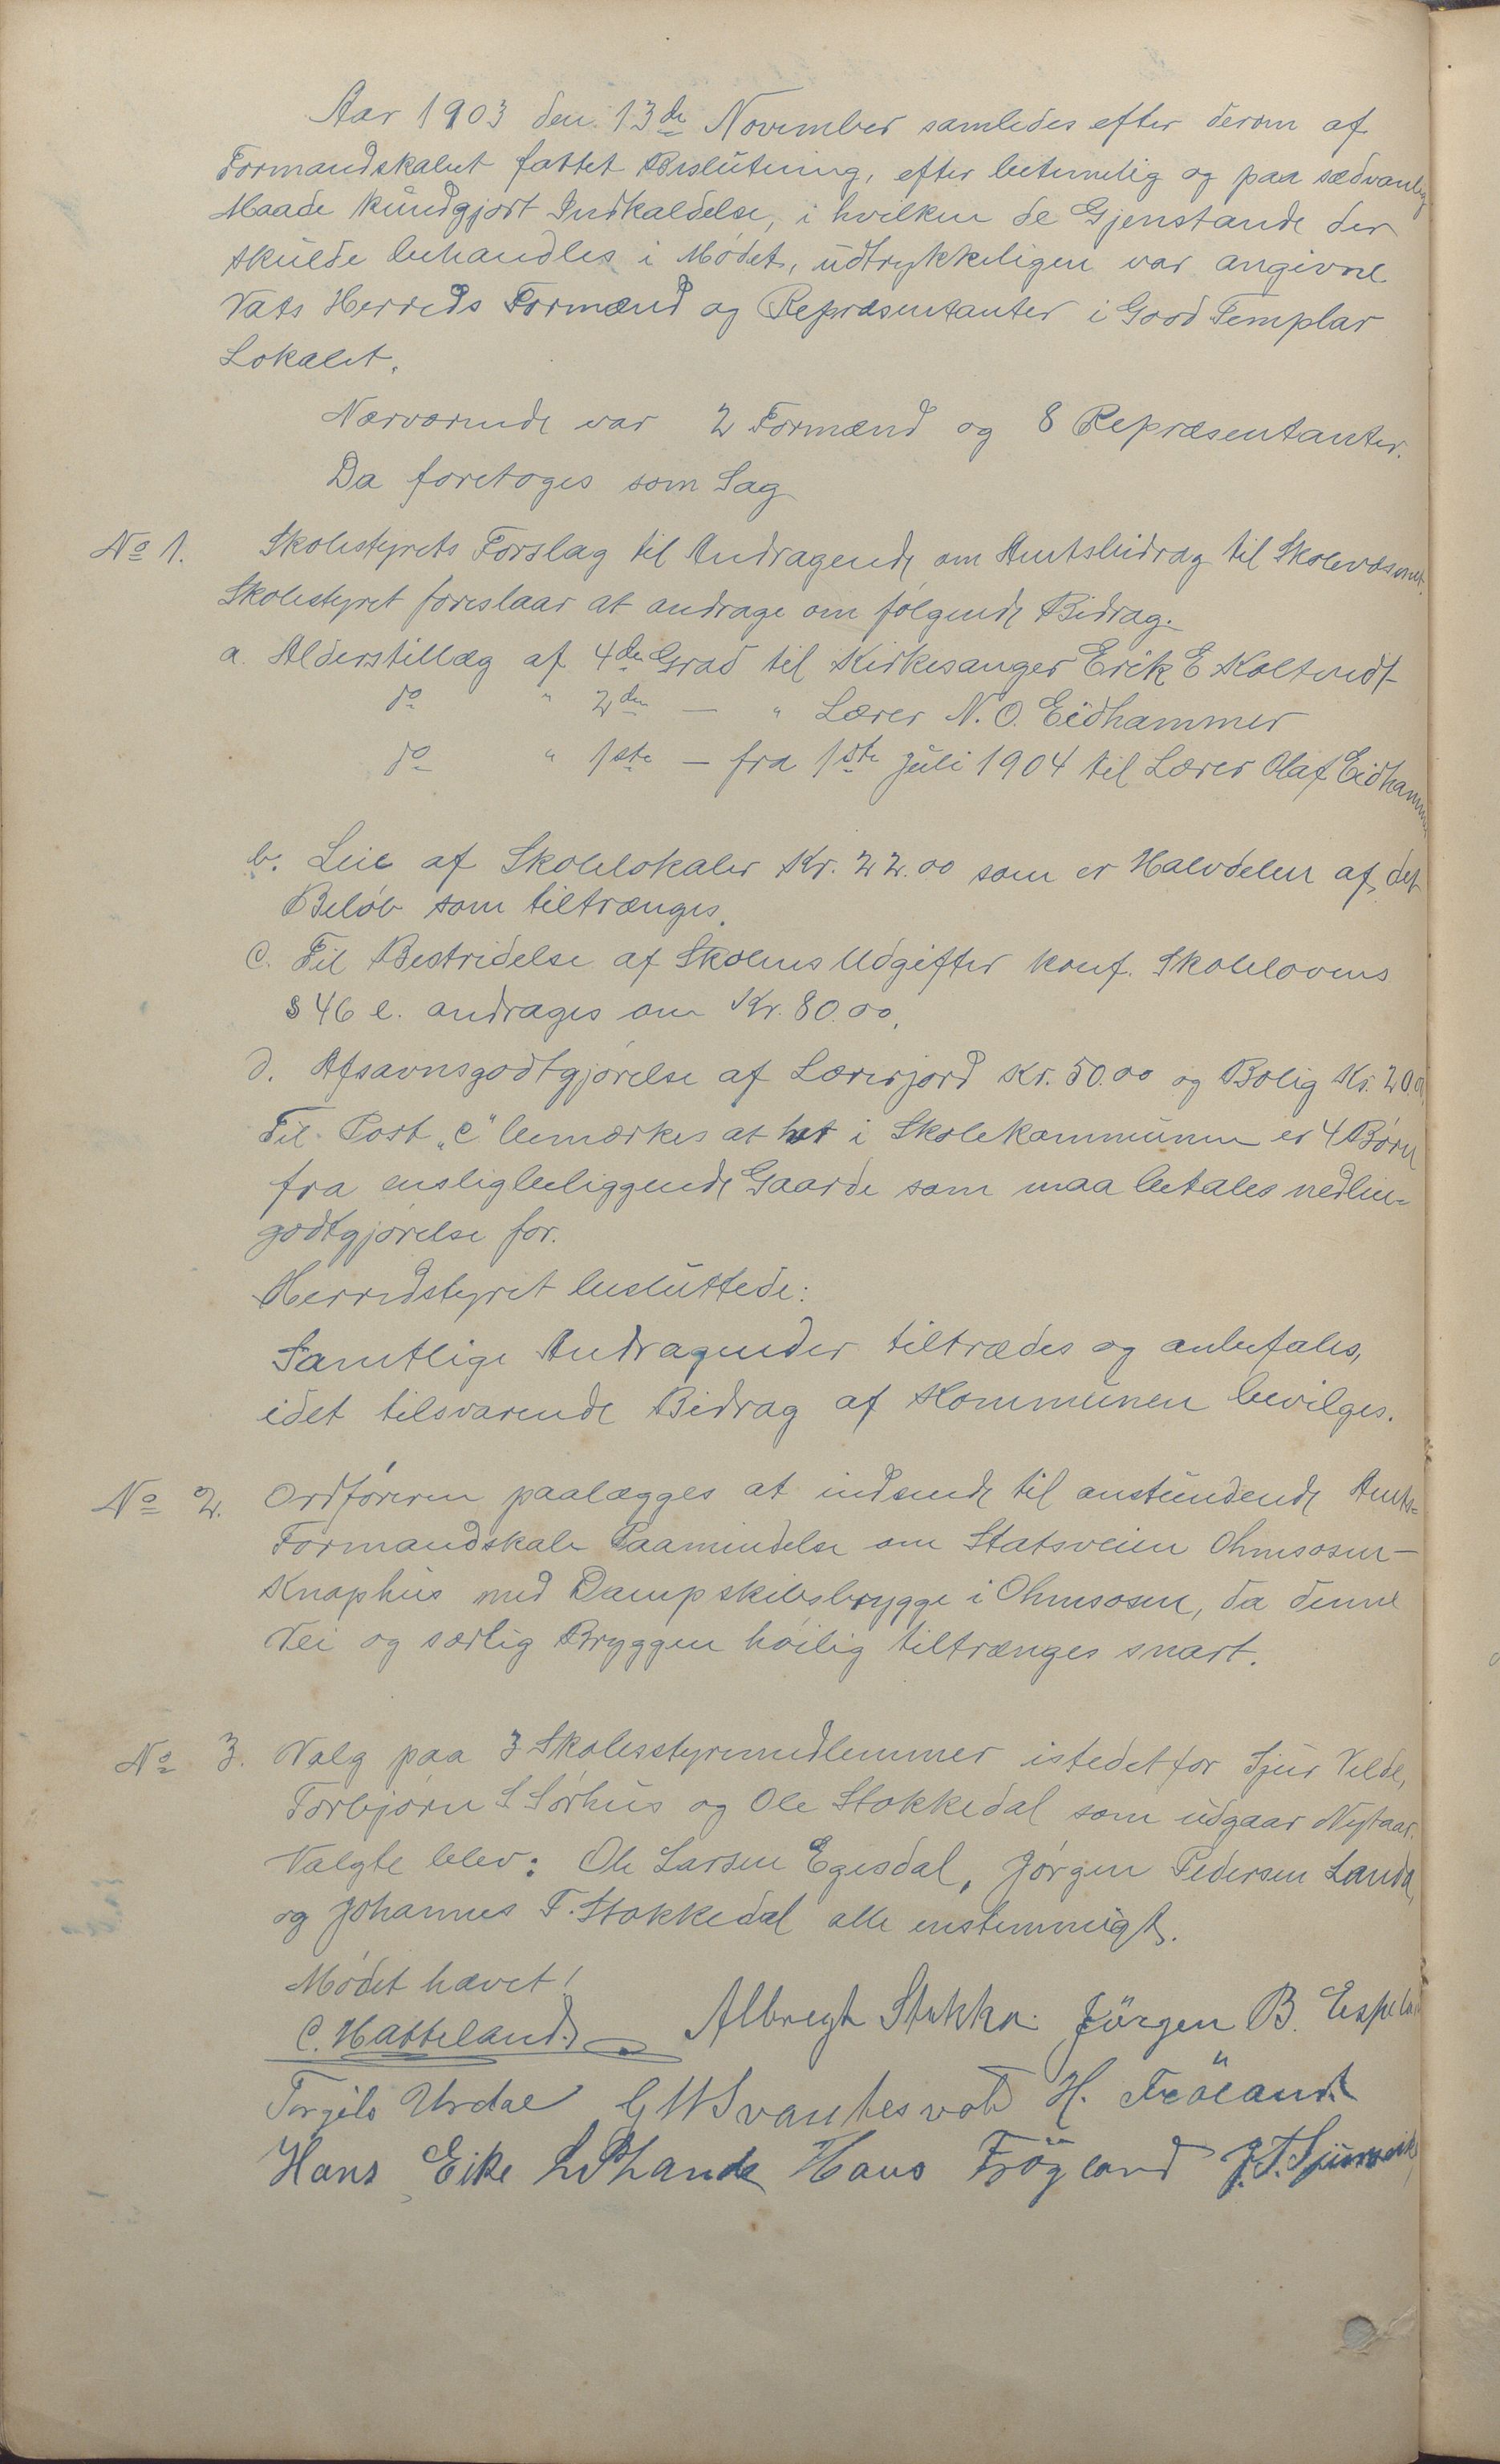 Aar 1903 den 13de November samledes efter derom af
Formandskabet fattet Beslutning, efter betimelig og paa sædvanlig
Maade kundgjort Indkaldelse, i hvilken de Gjenstande der
skulde behandles i Mødet, udtrykkeligen var angivne
Vats Herreds Formænd og Repræsentanter i Good Templar
Lokalet.
Nærværende var 2 Formænd og 8 Repræsentanter.
Da foretoges som Sag
No 1. Skolestyrets Forslag til Andragende om Amtsbidrag til Skolevæsenet.
Skolestyret foreslaar at andrage om følgende Bidrag.
a. Alderstillæg af 4de Grad til Kirkesanger Erik E Koltvedt
do " 2den — " Lærer N. O. Eidhammer
do " 1ste — fra 1ste Juli 1904 til Lærer Olaf Eidhammer
b. Leie af Skolelokaler Kr. 22.00 som er Halvdelen af det
Beløb som tiltrænges.
c. Til Bestridelse af Skolens Udgifter konf. Skolelovens
§ 46 e. andrages om Kr. 80.00.
d. Afsavnsgodtgjørelse af Lærerjord Kr. 50.00 og Bolig Kr. 20.00
Til Post „c" bemærkes at her i Skolekommunen er 4 Børn
fra ensligbeliggende Gaarde som maa betales
godtgjørelse for.
Herredstyret besluttede:
Samtlige Andragender tiltrædes og anbefales,
idet tilsvarende Bidrag af Kommunen bevilges.
No 2. Ordføreren paalægges at indsende til anstundende Amts=
Formandskab Paamindelse om Statsveien Ølmsosen —
Knaphus med Dampskibsbrygge i Ølmsosen, da denne
Vei og særlig Bryggen høilig tiltrænges snart.
No 3. Valg paa 3 Skolesstyremedlemmer istedetfor Sjur Velde,
Torbjørn S Sørhus og Ole Stokkedal som udgaar Nytaar.
Valgte blev: Ole Larsen Egesdal, Jørgen Pedersen Landa,
og Johannes T. Stokkedal alle enstemmigt.
Mødet hævet!
C. Hatteland. Albregt Stakka. Jörgen B. Espeland
Torgils Urdal G W Svantesvold H. Fröland
Hans Eike Hans Frögland J. T.